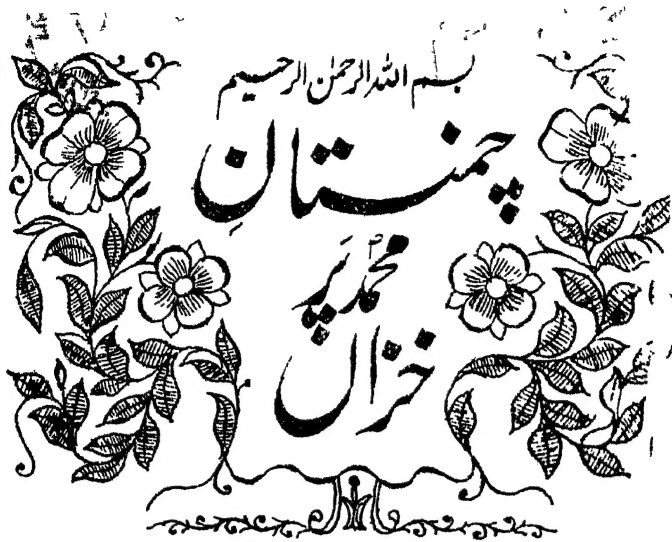 بسم اللہ الرحمٰن الرحیم
چمنستانِ
محمدؐ پَر
خزاں